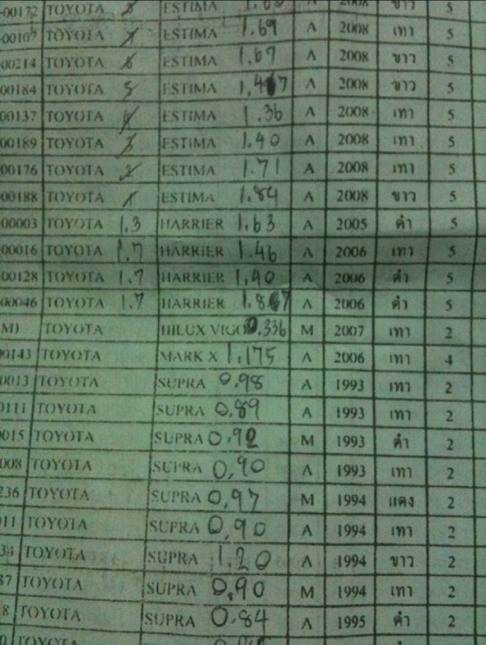 00172 TOYOTA ESTIMA A 2008 ขาว 5
TOYOTA ESTIMA 1.69 A 2008 เทา 5
00214 TOYOTA ESTIMA 1.67 A 2008 ขาว 5
00184 TOYOTA 5 ESTIMA A 2008 ขาว 5
00137 TOYOTA ESTIMA 1.36 A 2008 เทา 5
00189 TOYOTA 3 ESTIMA 1.40 A 2008 เทา 5
00176 TOYOTA 2 ESTIMA 1.71 A 2008 เทา 5
00188 TOYOTA 1 ESTIMA 1.84 A 2008 ขาว 5
00003 TOYOTA 1.3 HARRIER 1.63 A 2005 ดำ 5
00016 TOYOTA 1.7 HARRIER 1.46 A 2006 เทา 5
00128 TOYOTA 1.7 HARRIER 1.90 A 2006 ดำ 5
00046 TOYOTA 1.7 HARRIER A 2006 ดำ 5
M) TOYOTA HILUX VIGO 0.336 M 2007 เทา 2
00143 TOYOTA MARK X 1.175 A 2006 เทา 4
0013 TOYOTA SUPRA 0.98 A 1993 เทา 2
0111 TOYOTA SUPRA 0.89 A 1993 เทา 2
0015 TOYOTA SUPRA 0.92 M 1993 ดำ 2
008 TOYOTA SUPRA 0.90 A 1993 เทา 2
236 TOYOTA SUPRA 0.97 M 1994 แดง 2
011 TOYOTA SUPRA 0.90 A 1994 เทา 2
TOYOTA SUPRA 1.20 A 1994 ขาว 2
37 TOYOTA SUPRA 0.90 M 1994 เทา 2
8 TOYOTA SUPRA 0.84 A 1995 ดำ 2
0 TOYOTA